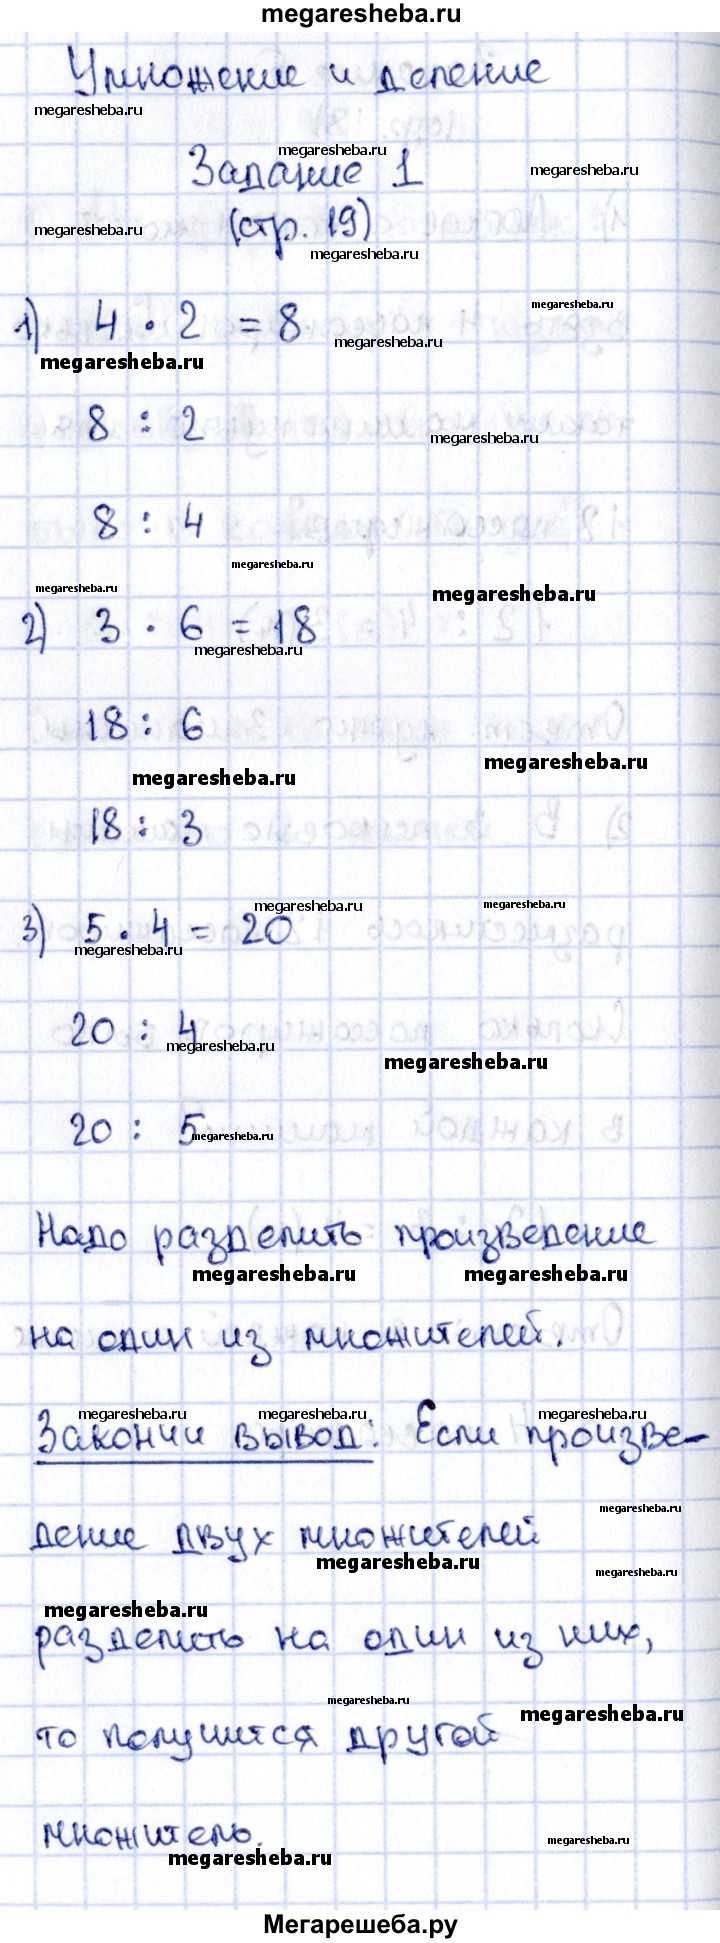 megaresheba.ru
Умножение и деление
megaresheba.ru
megaresheba.ru
megaresheba.ru
Задание 1
megaresheba.ru
(стр. 19)
megaresheba.ru
megaresheba.ru
1) 4 · 2 = 8
megaresheba.ru
megaresheba.ru
8 : 2
megaresheba.ru
8 : 4
megaresheba.ru
megaresheba.ru
megaresheba.ru
2) 3 · 6 = 18
megaresheba.ru
18 : 6
megaresheba.ru
megaresheba.ru
18 : 3
megaresheba.ru
megaresheba.ru
3) 5 · 4 = 20
megaresheba.ru
20 : 4
megaresheba.ru
megaresheba.ru
20 : 5
megaresheba.ru
Надо разделить произведение
megaresheba.ru
megaresheba.ru
на один из множителей.
megaresheba.ru
megaresheba.ru
megaresheba.ru
Закончи вывод: Если произве-
megaresheba.ru
дение двух множителей
megaresheba.ru
megaresheba.ru
megaresheba.ru
разделить на один из них,
megaresheba.ru
megaresheba.ru
то получится другой
множитель.
megaresheba.ru
megaresheba.ru
Мегарешеба.ру